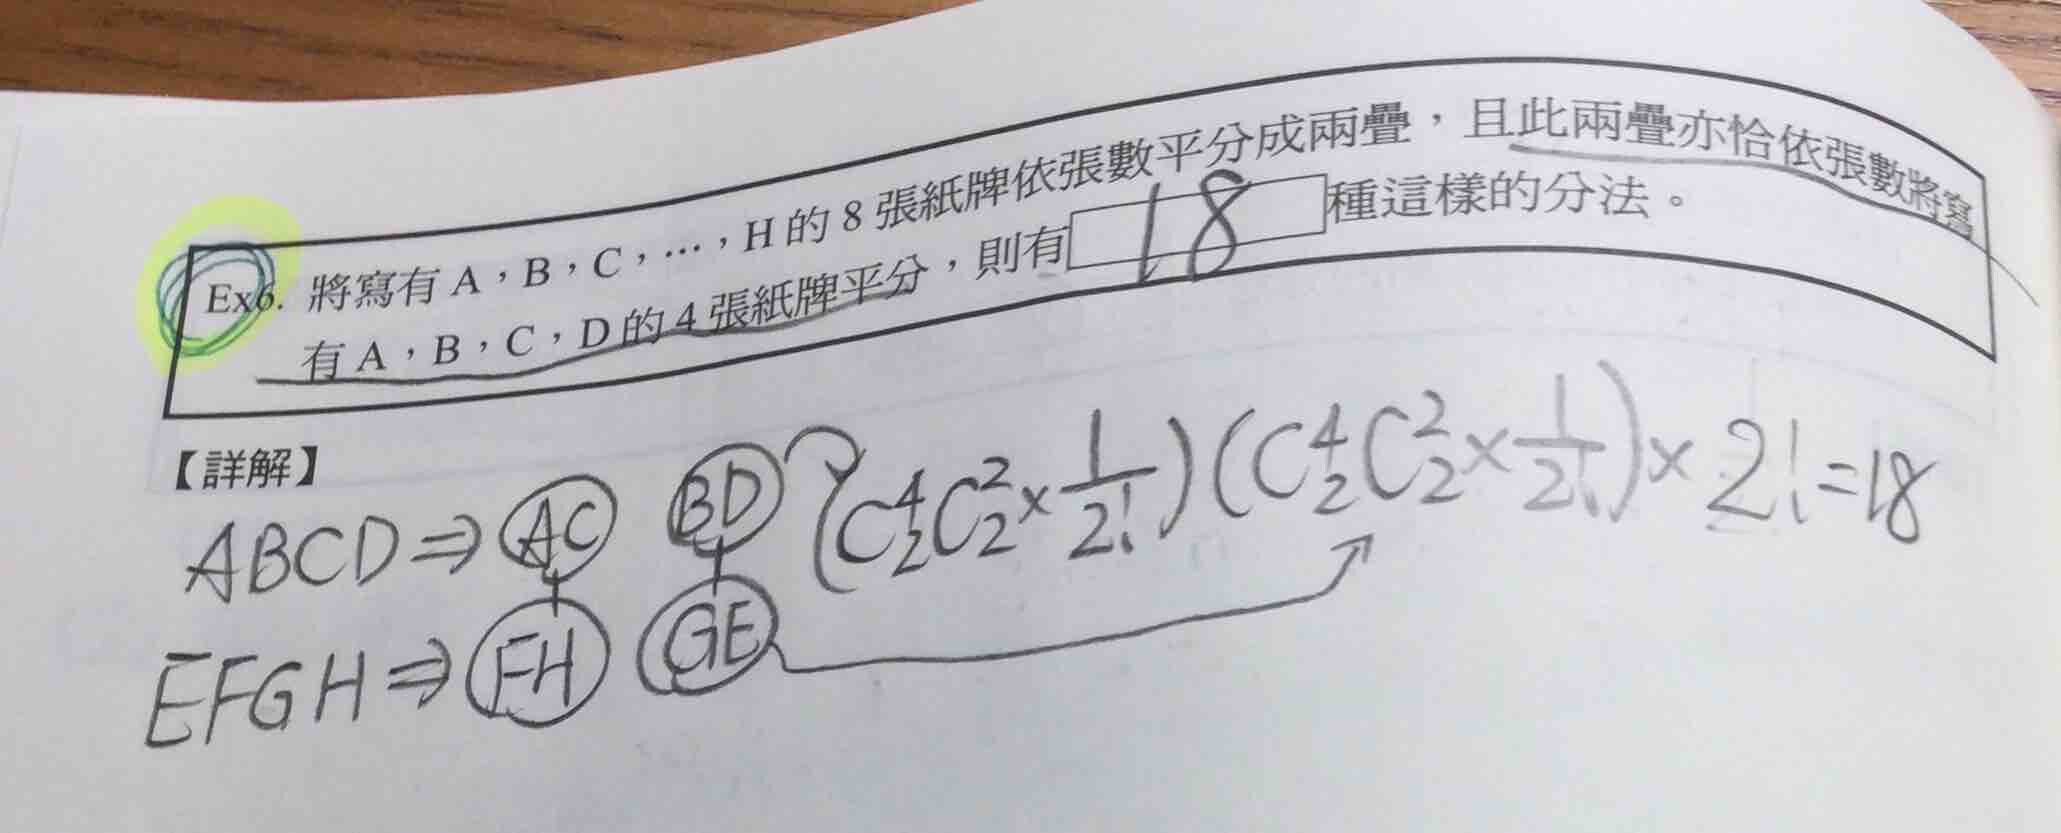 Ex6. 將寫有 A,B,C,…,H 的 8 張紙牌依張數平分成兩疊,且此兩疊亦恰依張數將寫
有 A,B,C,D 的 4 張紙牌平分,則有 18 種這樣的分法。
【詳解】
ABCD ⇒ AC BD (C⁴₂C²₂×1/2!)(C⁴₂C²₂×1/2!)×2!=18
EFGH ⇒ FH GE